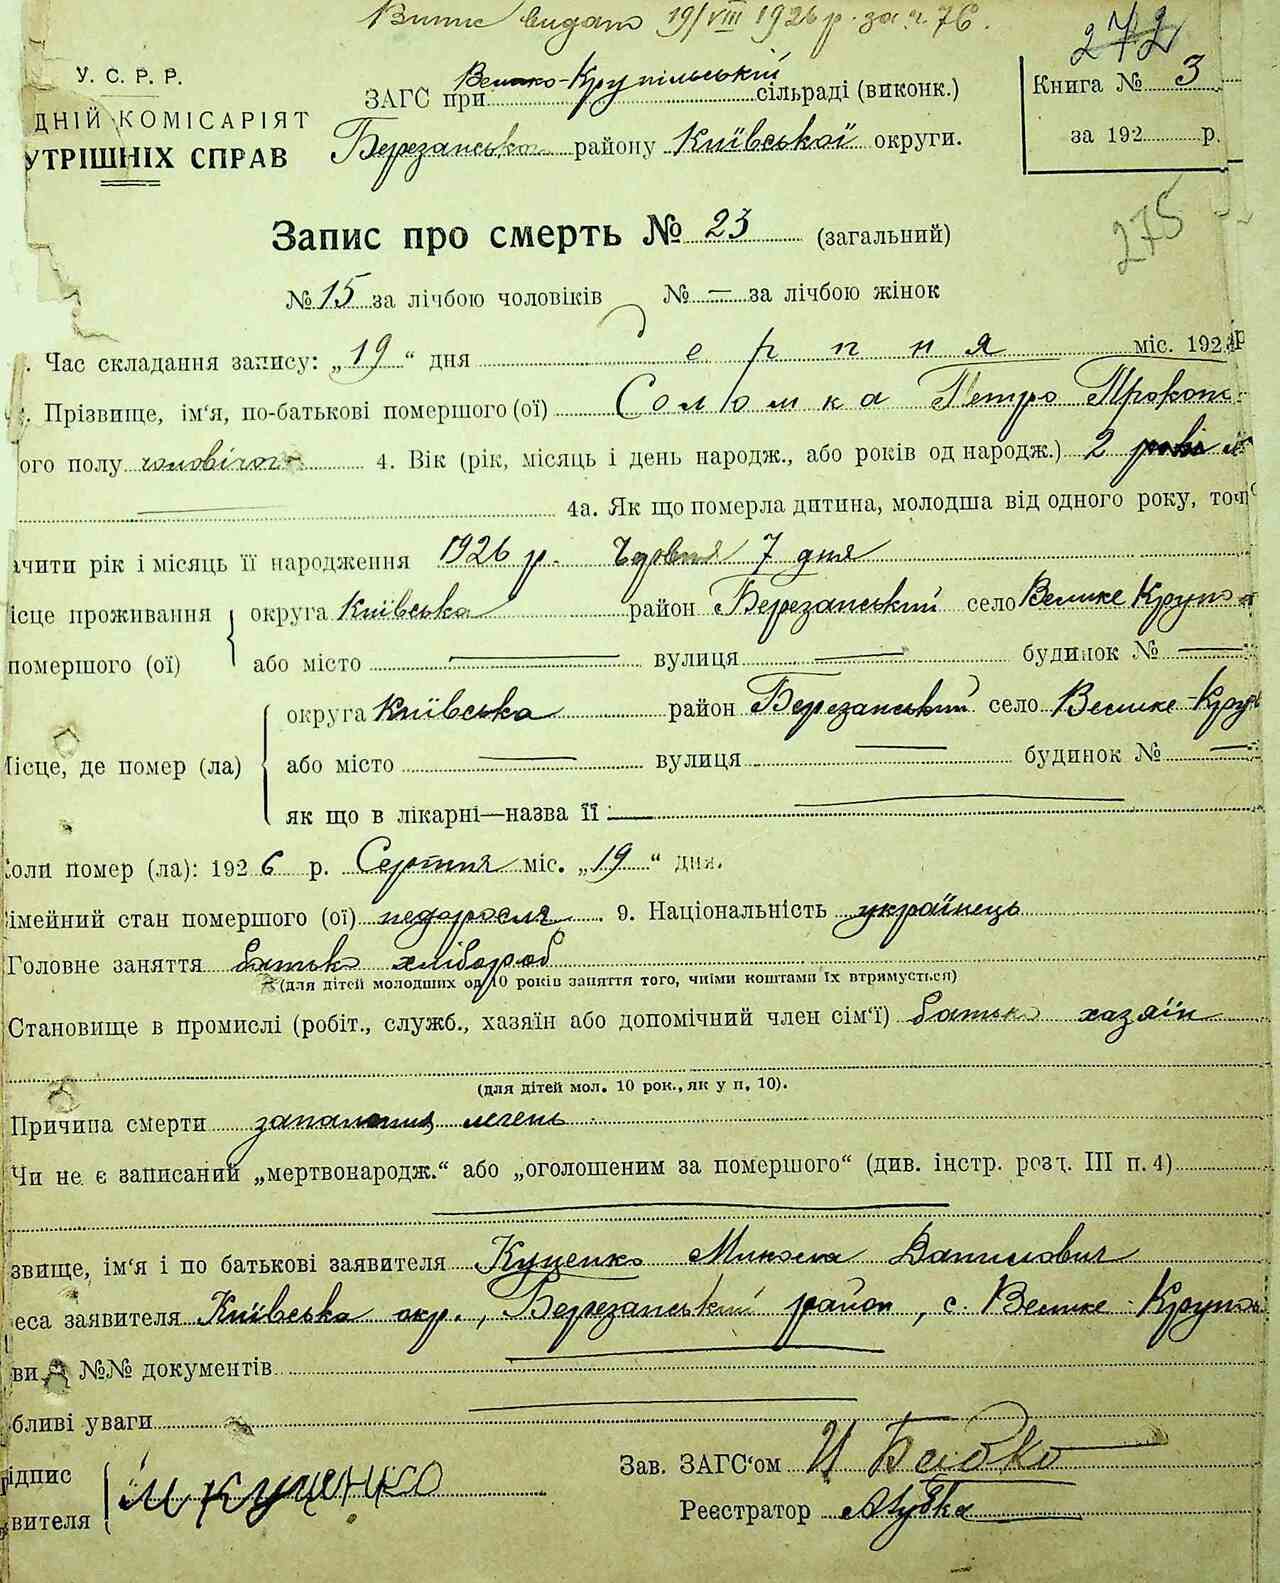 Випис видано 19/VIII 1926 р. за ч. 76.
272
У. С. Р. Р.
ДНІЙ КОМІСАРІЯТ
УТРІШНІХ СПРАВ
ЗАГС при Велико-Крупільській сільраді (виконк.)
Березанського району Київської округи.
Книга № 3
за 192 р.
Запис про смерть № 23 (загальний)
275
№ 15 за лічбою чоловіків № — за лічбою жінок
Час складання запису: „19“ дня Серпня міс. 192
Прізвище, ім‘я, по-батькові помершого (ої) Солюмка Петро Прокоп
ого полу чоловічого 4. Вік (рік, місяць і день народж., або років од народж.) 2
4а. Як що померла дитина, молодша від одного року, точ
ачити рік і місяць її народження 1926 р. Червня 7 дня
ісце проживання
помершого (ої)
округа Київська район Березанський село Велике Круп
або місто — вулиця — будинок № —
Місце, де помер (ла)
округа Київська район Березанський село Велике-Круп
або місто — вулиця — будинок № —
як що в лікарні—назва її —
Коли помер (ла): 1926 р. Серпня міс. „19“ дня.
імейний стан помершого (ої) недоросля 9. Національність українець
Головне заняття батько хлібороб
(для дітей молодших од 10 років заняття того, чиїми коштами їх втримується)
Становище в промислі (робіт., служб., хазяїн або допомічний член сім‘ї) батько хазяїн
(для дітей мол. 10 рок., як у п. 10).
Причина смерти запалення легень
Чи не є записаний „мертвонародж.“ або „оголошеним за помершого“ (див. інстр. розд. III п. 4)
звище, ім‘я і по батькові заявителя Куценко Микола Данилович
еса заявителя Київська окр., Березанський район, с. Велике-Круполь
ви №№ документів
бливі уваги
ідпис
вителя
М Куценко
Зав. ЗАГС‘ом И Бабко
Реестратор